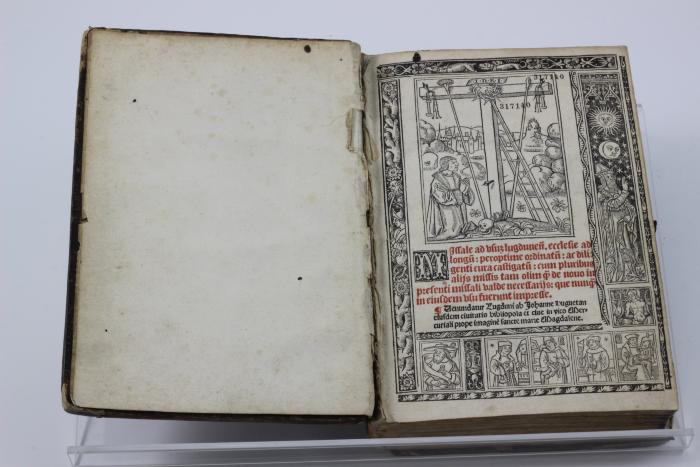 INRI
317140
317140
Missale ad vsuz lugduneñ. ecclesie ad
longũ: peroptime ordinatũ: ac dili
genti cura castigatũ: cum pluribus
alijs missis tam olim qʒ de nouo in
presenti missali valde necessarijs: que nunqʒ
in eiusdem vsu fuerunt impresse.
¶ Venundatur Lugduni ab Johanne huguetan
eiusdem ciuitatis bibliopola et ciue in vico Mer
curiali prope imaginẽ sancte marie Magdalene.